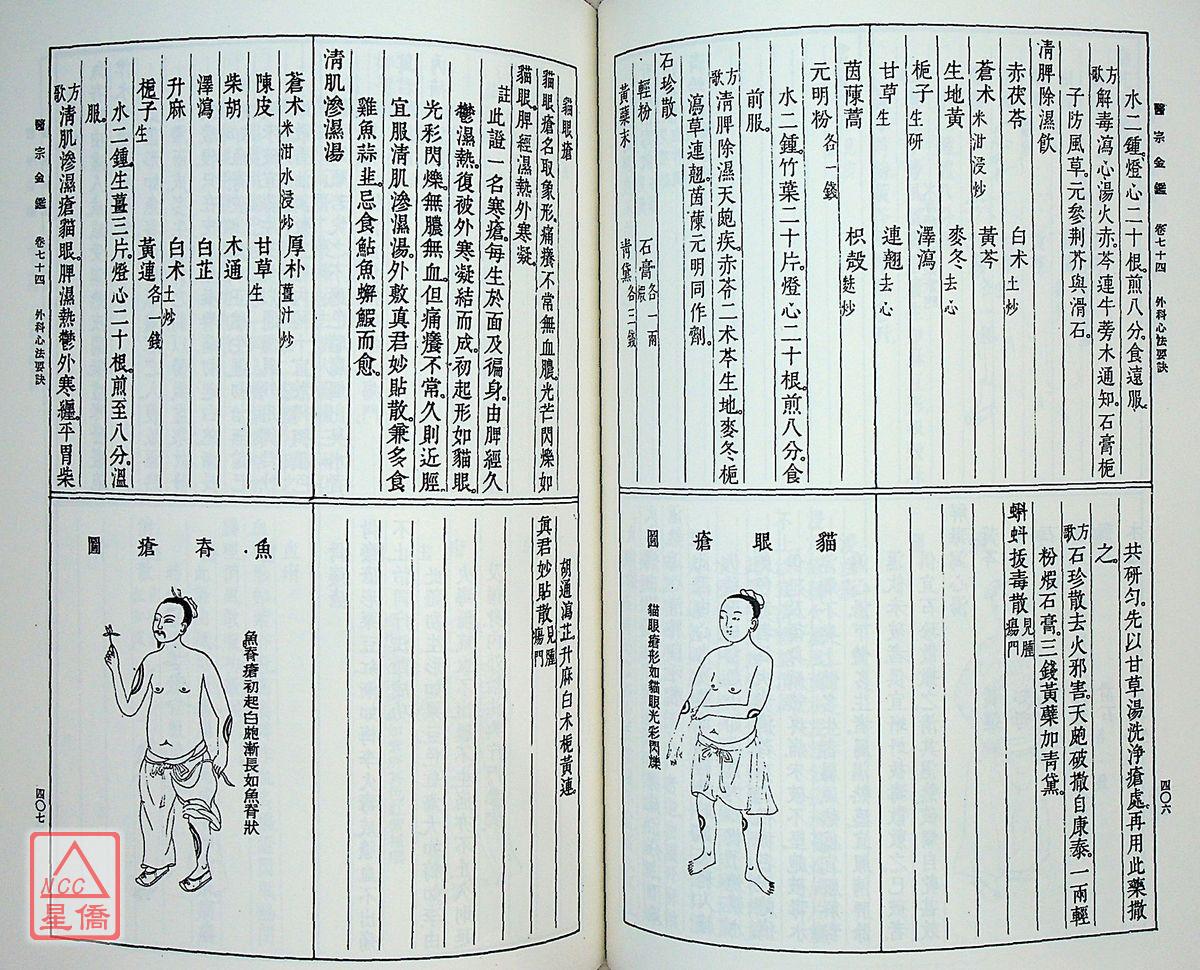 醫宗金鑑 卷七十四 外科心法要訣
水二鍾燈心二十根煎八分食遠服
方歌 解毒瀉心湯火赤芩連牛旁木通知石膏梔
子防風草元參荆芥與滑石
清脾除濕飲
赤茯苓 白朮土炒
蒼朮米泔浸炒 黃芩
生地黃 麥冬去心
梔子生研 澤瀉
甘草生 連翹去心
茵蔯蒿 枳殼麩炒
元明粉各一錢
水二鍾竹葉二十片燈心二十根煎八分食
前服
方歌 清脾除濕天皰疾赤苓二朮芩生地麥冬梔
瀉草連翹茵蔯元明同作劑
石珍散
輕粉 石膏煅各一兩
黃蘗末 青黛各三錢
共研勻先以甘草湯洗淨瘡處再用此藥撒
之
方歌 石珍散去火邪害天皰破撒自康泰一兩輕
粉煆石膏三錢黃蘗加青黛
蝌蚪拔毒散見腫瘍門
貓眼瘡圖
貓眼瘡形如貓眼光彩閃爍
四〇六
貓眼瘡
貓眼瘡名取象形痛癢不常無血膿光芒閃爍如
貓眼脾經濕熱外寒凝
註 此證一名寒瘡每生於面及徧身由脾經久
鬱濕熱復被外寒凝結而成初起形如貓眼
光彩閃爍無膿無血但痛癢不常久則近脛
宜服清肌滲濕湯外敷真君妙貼散兼多食
雞魚蒜韭忌食鮎魚蟹鰕而愈
清肌滲濕湯
蒼朮米泔水浸炒 厚朴薑汁炒
陳皮 甘草生
柴胡 木通
澤瀉 白芷
升麻 白朮土炒
梔子生 黃連各一錢
水二鍾生薑三片燈心二十根煎至八分溫
服
方歌 清肌滲濕瘡貓眼脾濕熱鬱外寒纏平胃柴
醫宗金鑑 卷七十四 外科心法要訣
胡通瀉芷升麻白朮梔黃連
真君妙貼散見腫瘍門
魚脊瘡圖
魚脊瘡初起白皰漸長如魚脊狀
四〇七
NCC
星僑